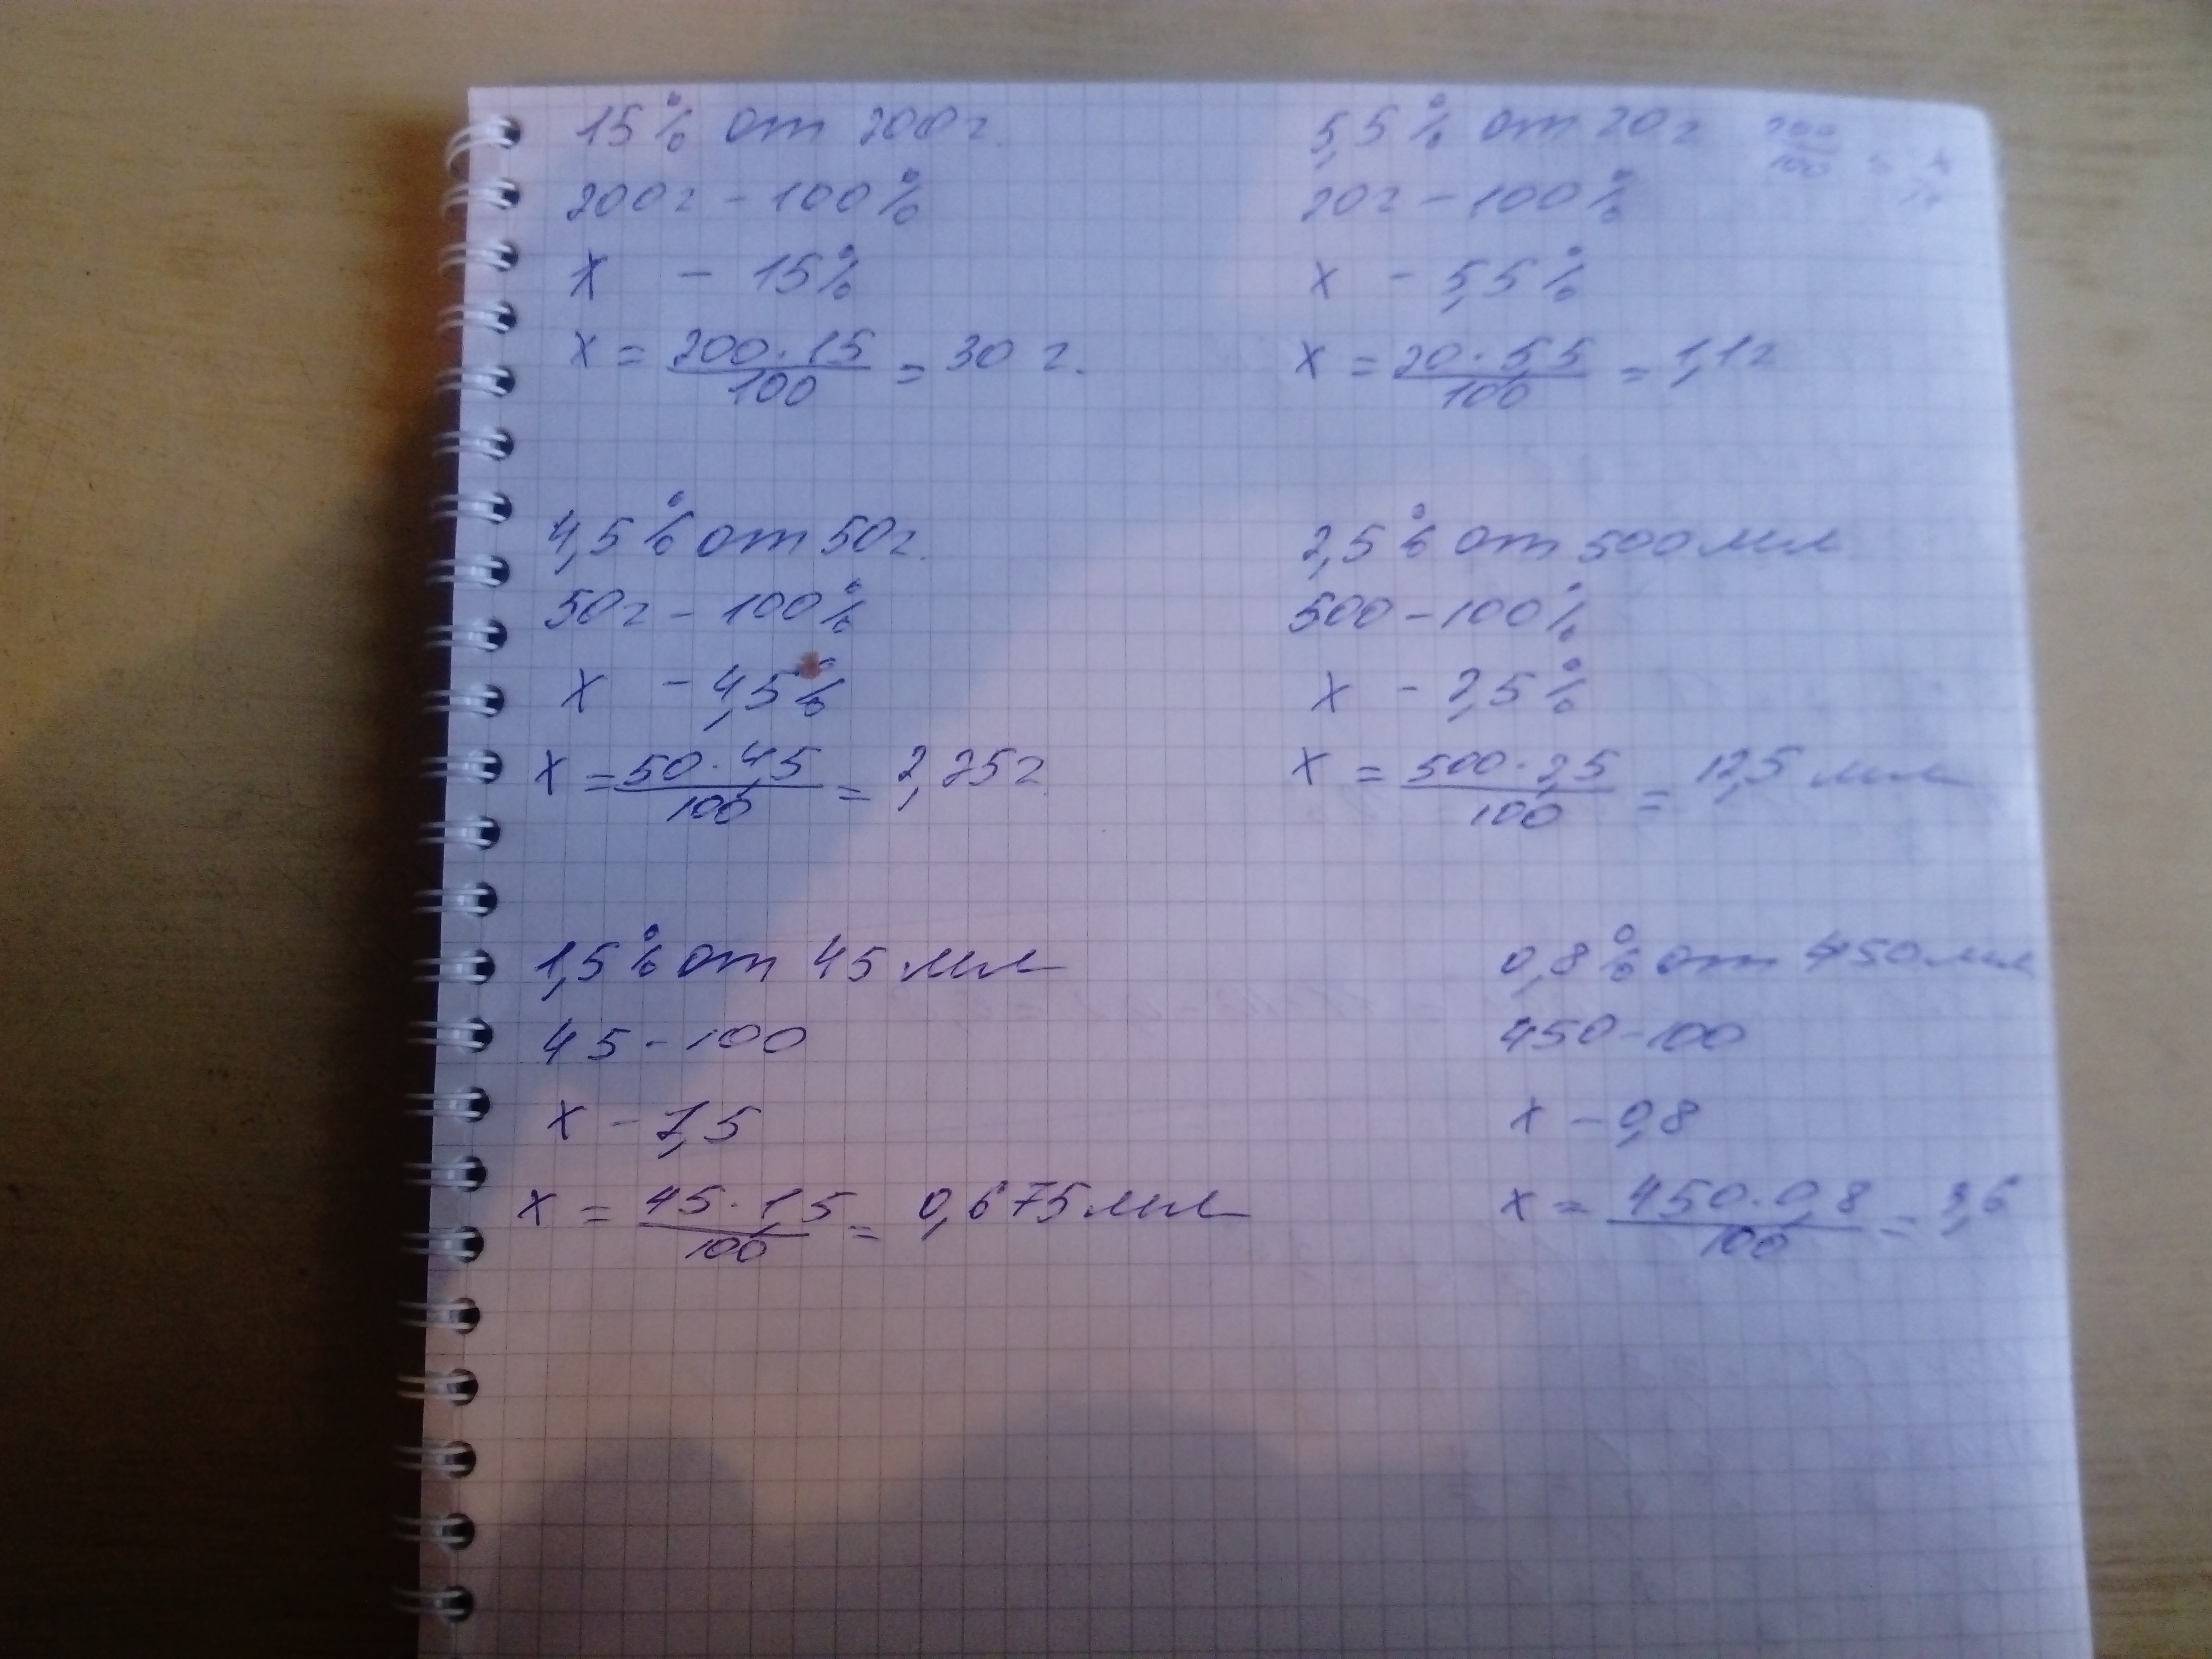 15% от 200г.
200г - 100%
х - 15%
х = 200·15
100
= 30 г.
5,5% от 20г
20г - 100%
х - 5,5%
х = 20·5,5
100
= 1,1г
4,5% от 50г.
50г - 100%
х - 4,5%
х = 50·4,5
100
= 2,25г.
2,5% от 500 мл
500 - 100%
х - 2,5%
х = 500·2,5
100
= 12,5 мл
1,5% от 45 мл
45 - 100
х - 1,5
х = 45·1,5
100
= 0,675 мл
0,8% от 450 мл
450 - 100
х - 0,8
х = 450·0,8
100
= 3,6